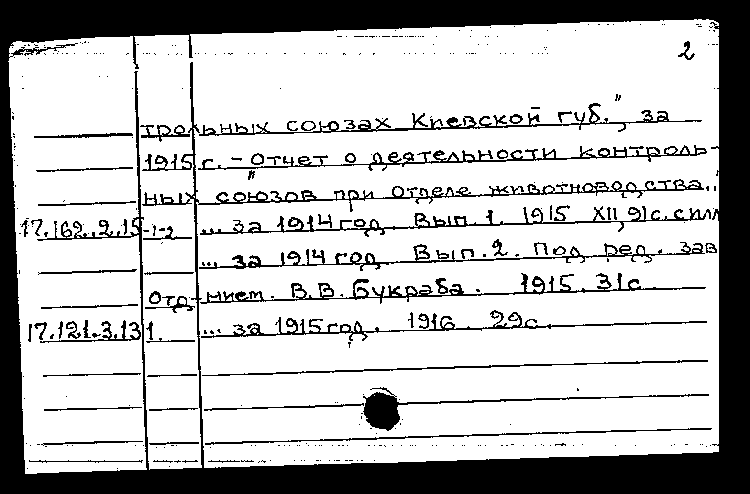 2
трольных союзах Киевской губ.", за
1915 г. - "Отчет о деятельности контроль-
ных союзов при Отделе животноводства..."
17.162.2.15-1-2 ... за 1914 год. Вып. 1. 1915 XII, 91 с. с илл
... за 1914 год. Вып. 2. Под ред. зав
Отд-нием. В.В. Букраба. 1915. 31 с.
17.121.3.131. ... за 1915 год. 1916. 29 с.